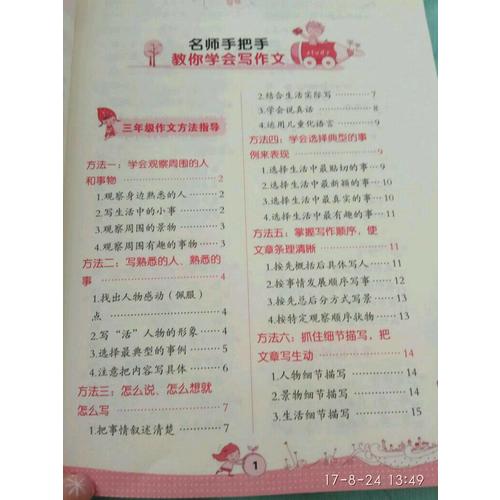 名师手把手
教你学会写作文
study
三年级作文方法指导
方法一：学会观察周围的人
和事物 ………… 2
1.观察身边熟悉的人 …… 2
2.写生活中的小事 …… 2
3.观察周围的景物 …… 3
4.观察周围有趣的事物 … 3
方法二：写熟悉的人、熟悉的
事 ………… 4
1.找出人物感动（佩服）
点 ………… 4
2.写“活”人物的形象 …… 4
3.选择最典型的事例 …… 5
4.注意把内容写具体 …… 6
方法三：怎么说、怎么想就
怎么写 ………… 7
1.把事情叙述清楚 …… 7
2.结合生活实际写 …… 7
3.学会说真话 ………… 8
4.运用儿童化语言 …… 9
方法四：学会选择典型的事
例来表现 ………… 9
1.选择生活中最贴切的事 … 9
2.选择生活中最新颖的事 … 10
3.选择生活中最真实的事 … 10
4.选择生活中最有趣的事 … 11
方法五：掌握写作顺序，使
文章条理清晰 ………… 11
1.按先概括后具体写人 … 11
2.按事情发展顺序写事 … 12
3.按先总后分方式写景 … 13
4.按特定观察顺序状物 … 13
方法六：抓住细节描写，把
文章写生动 ………… 14
1.人物细节描写 …… 14
2.景物细节描写 …… 14
3.生活细节描写 …… 15
1
17-8-24 13:49